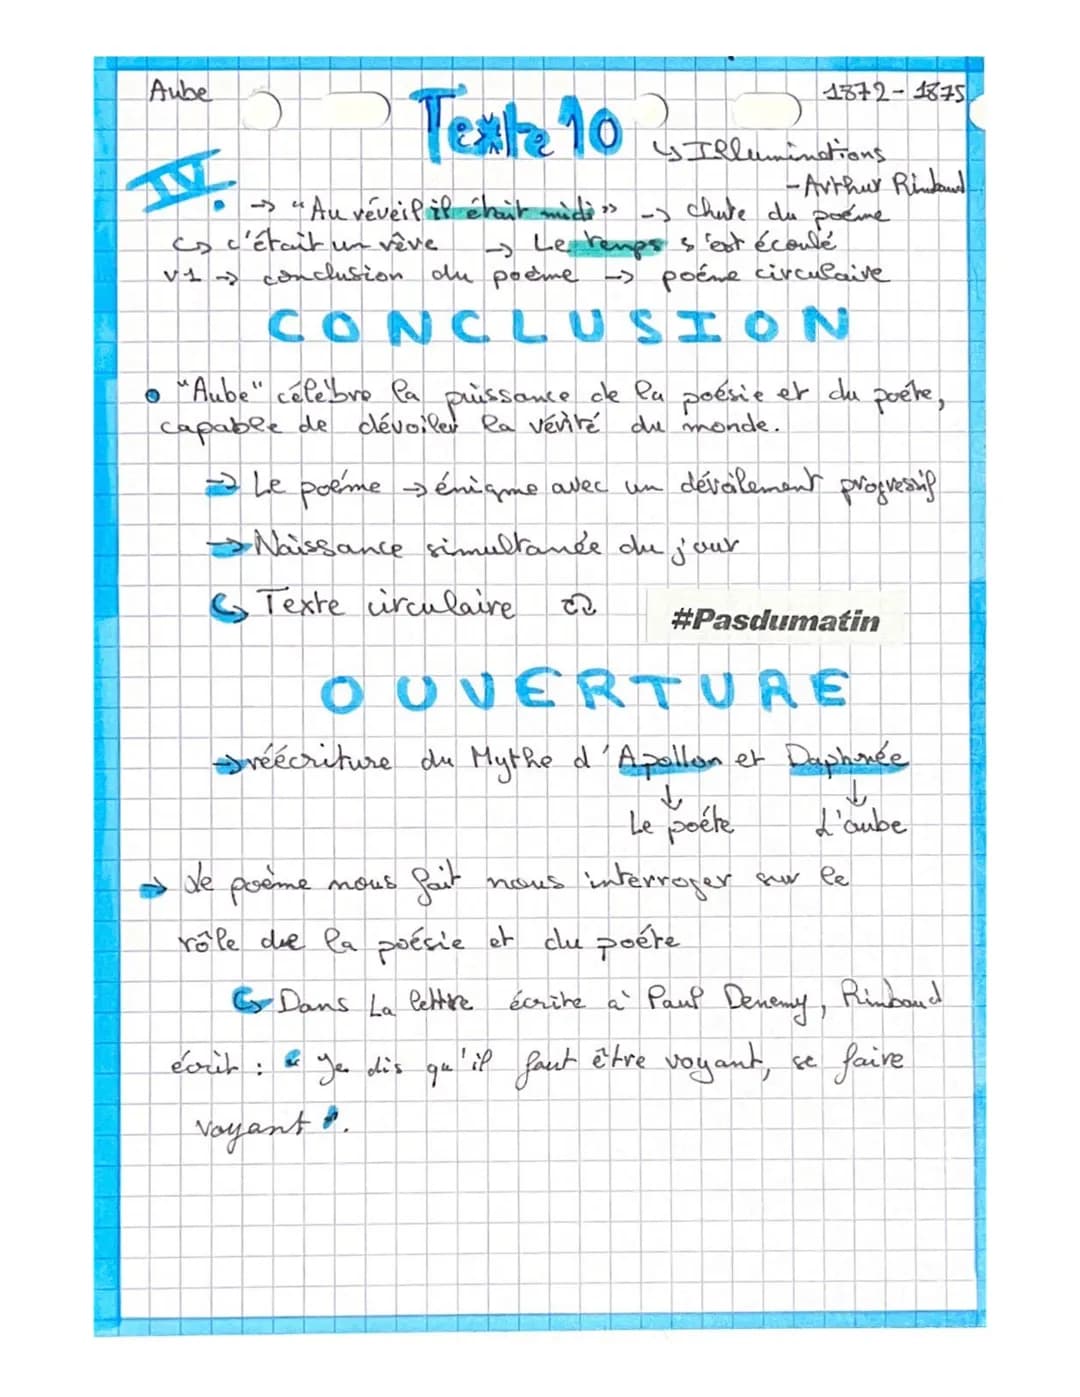 Aube
1872-1875
Texte 10
↳ Illuminations
- Arthur Rimbaud
IV.
• → "Au réveil il était midi" → chute du poème
↳ c'était un rêve → Le temps s'est écoulé
v1 → conclusion du poème → poéme circulaire
CONCLUSION
• "Aube" célèbre la puissance de la poésie et du poéte,
capable de dévoiler la vérité du monde.
→ Le poéme → énigme avec un dévoilement progressif
→ Naissance simultanée du jour
↳ Texte circulaire
#Pasdumatin
OUVERTURE
→ réécriture du Mythe d'Apollon et Daphnée
↓ ↓
Le poéte L'aube
→ Le poème nous fait nous interroger sur le
rôle de la poésie et du poéte
↳ Dans La lettre écrite à Paul Denemy, Rimbaud
écrit : " Je dis qu'il faut être voyant, se faire
voyant ".